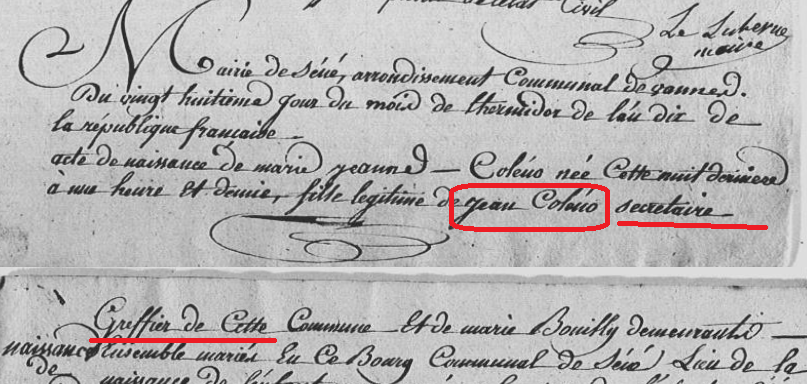 de l'état Civil
Le Luherne
maire
Mairie de Séné, arrondissement Communal de vannes.
Du vingt huitieme jour du mois de thermidor de l'an dix de
la république française —
acte de naissance de marie jeanne — Coléno née Cette nuit derniere
à une heure et demie, fille legitime de jean Coléno secretaire —
Greffier de Cette Commune Et de marie Bouilly demeurants —
naissance Ensemble mariés En Ce Bourg Communal de Séné, Lieu de la
de naissance de l'enfant